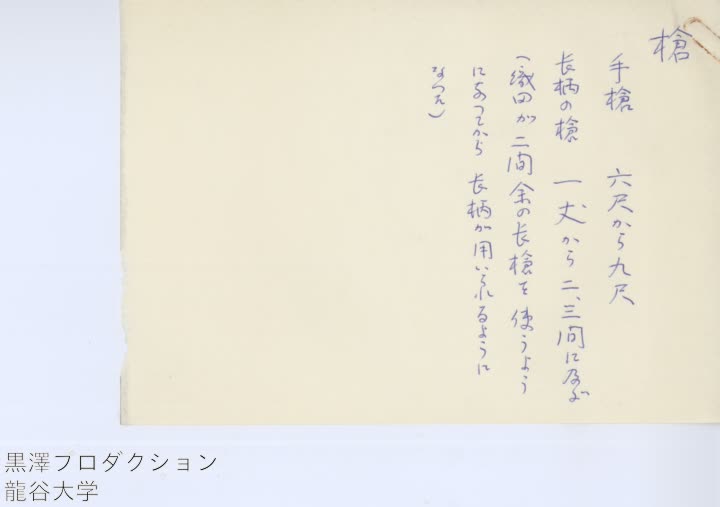 槍
手槍　六尺から九尺
長柄の槍　一丈から二、三間に及ぶ
（織田が二間余の長槍を使うよう
になってから長柄が用いられるように
なつた）
黒澤プロダクション
龍谷大学